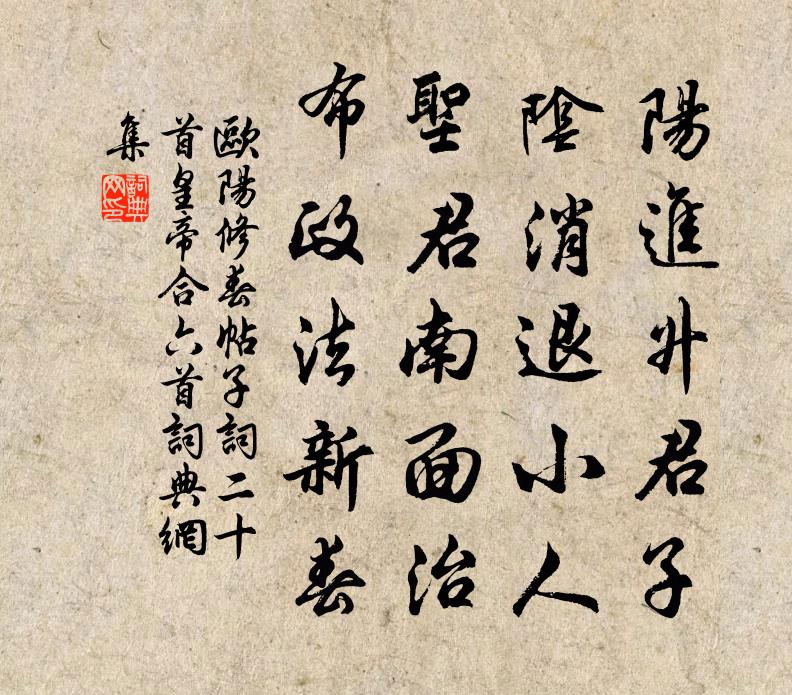 陽進升君子
陰消退小人
聖君南面治
布政法新春
歐陽修春帖子詞二十
首皇帝合六首詞典網
集
詞典
网印